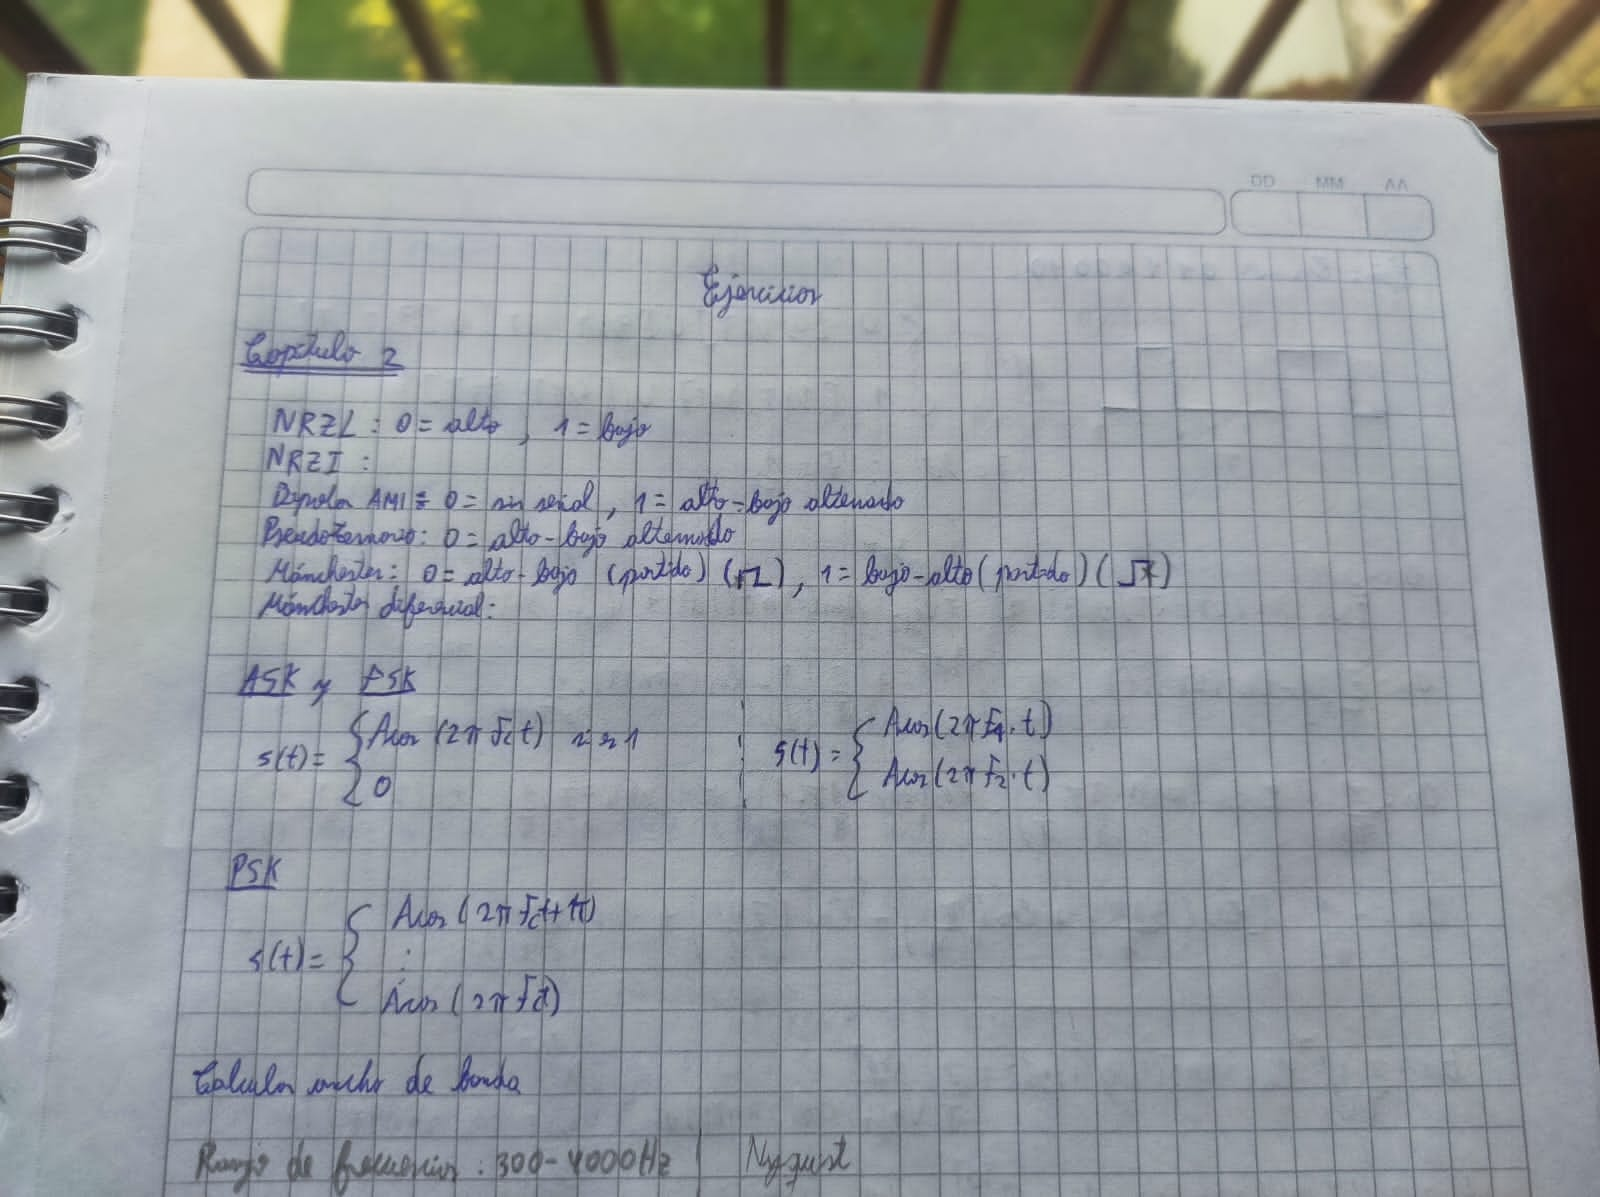 DD MM AA
Ejercicios
Capítulo 2
NRZL : 0 = alto , 1 = bajo
NRZI :
Bipolar AMI = 0 = sin señal , 1 = alto-bajo alternado
Pseudoternario: 0 = alto-bajo alternado
Mánchester: 0 = alto-bajo (partido) ( ), 1 = bajo-alto (partido) ( )
Mánchester diferencial:
ASK y FSK
s(t) = { Acos (2π fc t) si 1
0
s(t) = { Acos(2π f1 · t)
Acos(2π f2 · t)
PSK
s(t) = { Acos (2π fct+π)
:
Acos (2π fct)
Calcular ancho de banda
Rango de frecuencias : 300-4000Hz | Nyquist